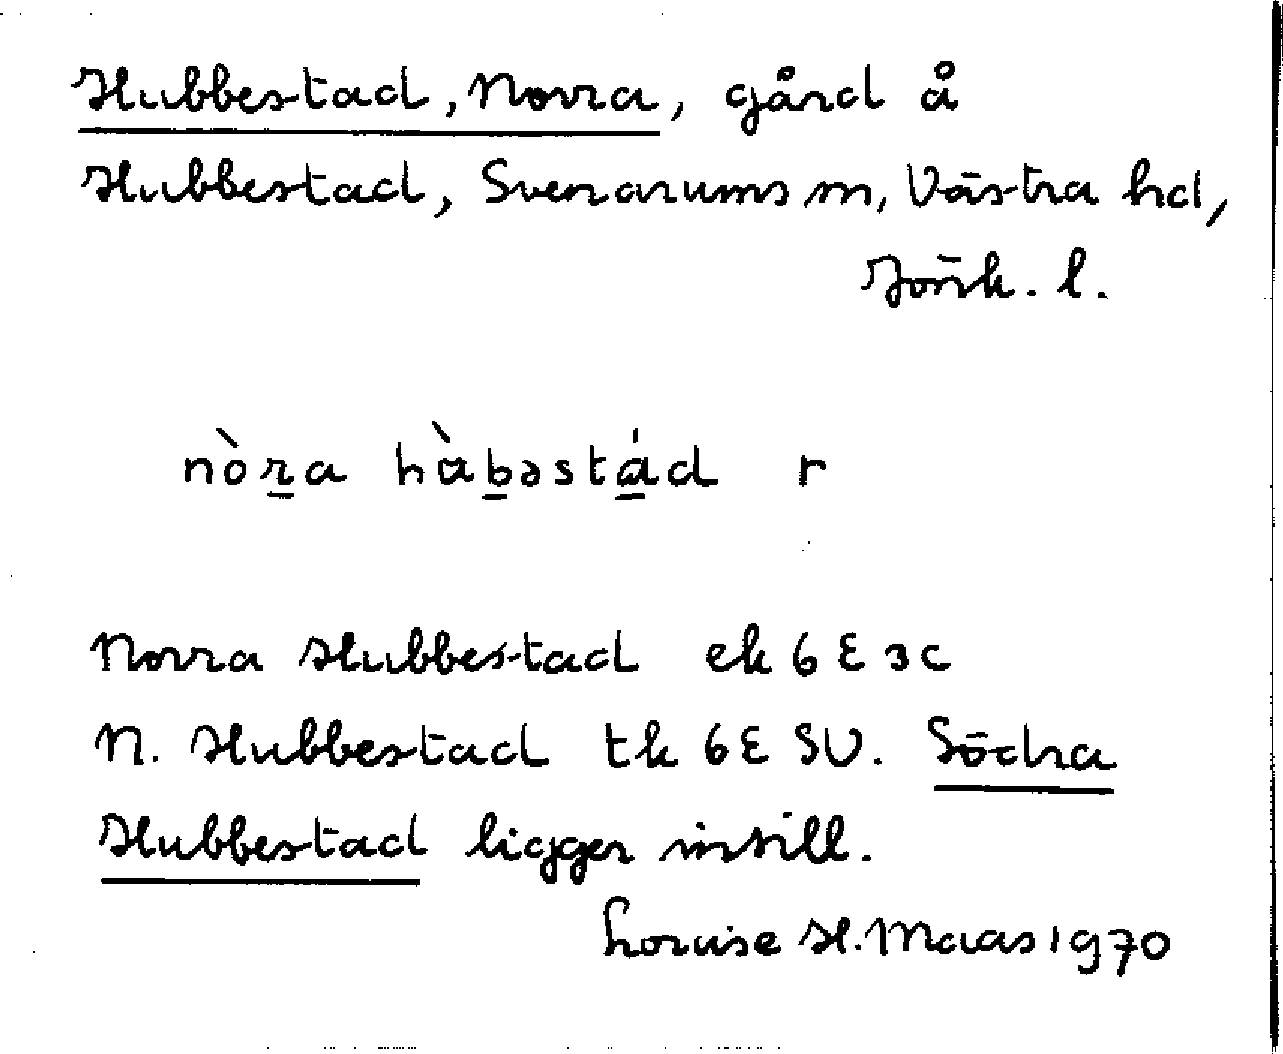 Hubbestad, Norra, gård å
Hubbestad, Svenarums sn, Västra hd,
Jönk. l.
nòra hàbəstád r
Norra Hubbestad ek 6 E 3c
N. Hubbestad tk 6E SV. Södra
Hubbestad ligger intill.
Louise H. Maas 1970